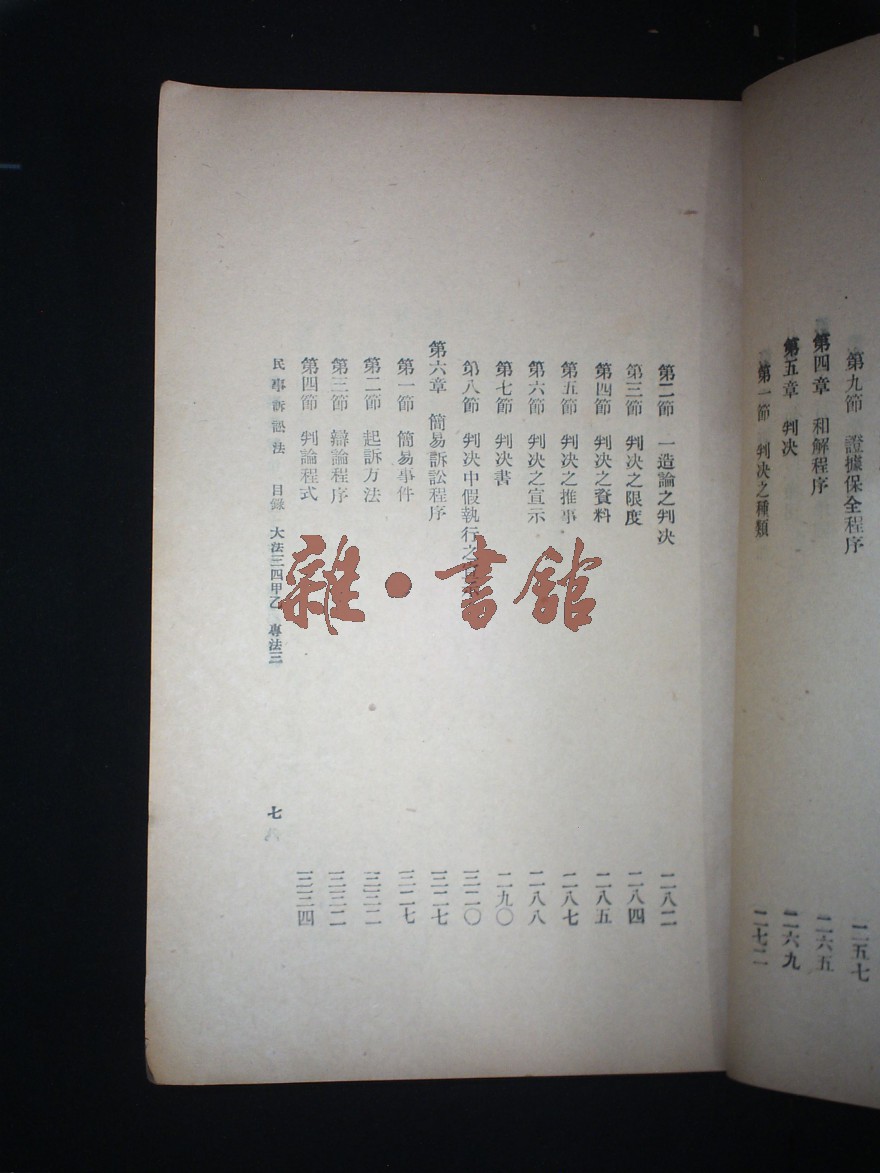 第九節 證據保全程序 二五七
第四章 和解程序 二六五
第五章 判决 二六九
第一節 判决之種類 二七二
第二節 一造論之判决 二八二
第三節 判决之限度 二八四
第四節 判决之資料 二八五
第五節 判决之推事 二八七
第六節 判决之宣示 二八八
第七節 判决書 二九〇
第八節 判决中假執行之 三二〇
第六章 簡易訴訟程序 三二七
第一節 簡易事件 三二七
第二節 起訴方法 三三二
第三節 辯論程序 三三二
第四節 判論程式 三三四
民事訴訟法 目錄 大法三四甲乙 專法三 七
雜·書館